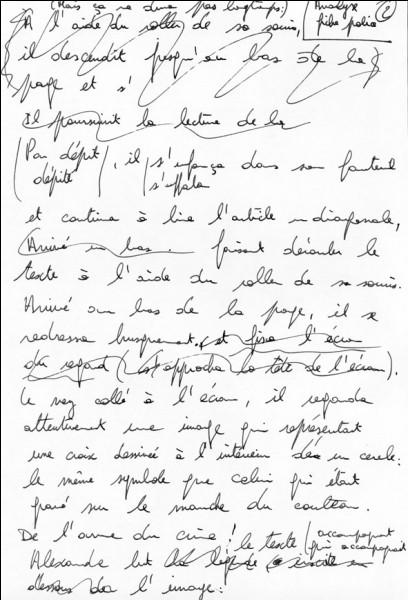 (Mais ça ne dure pas longtemps:)
Analyse
fibre polie
2
A l'aide du roller de sa souris,
il descendit jusqu'au bas de la
page et s'
Il poursuivit la lecture de la
Par dépit, il s'enfonça dans son fauteuil
dépité s'affala
et continua à lire l'article en diagonale,
Arrivé en bas. faisant dérouler le
texte à l'aide du roller de sa souris.
Arrivé au bas de la page, il se
redressa brusquement et fixa l'écran
du regard (et approcha la tête de l'écran).
Le nez collé à l'écran, il regarda
attentivement une image qui représentait
une croix dessinée à l'intérieur d'un cercle:
le même symbole que celui qui était
gravé sur le manche du couteau.
De l'arme du crime! le texte accompagnant
qui accompagnait
Alexandre lut la légende inscrite en
dessous de l'image: